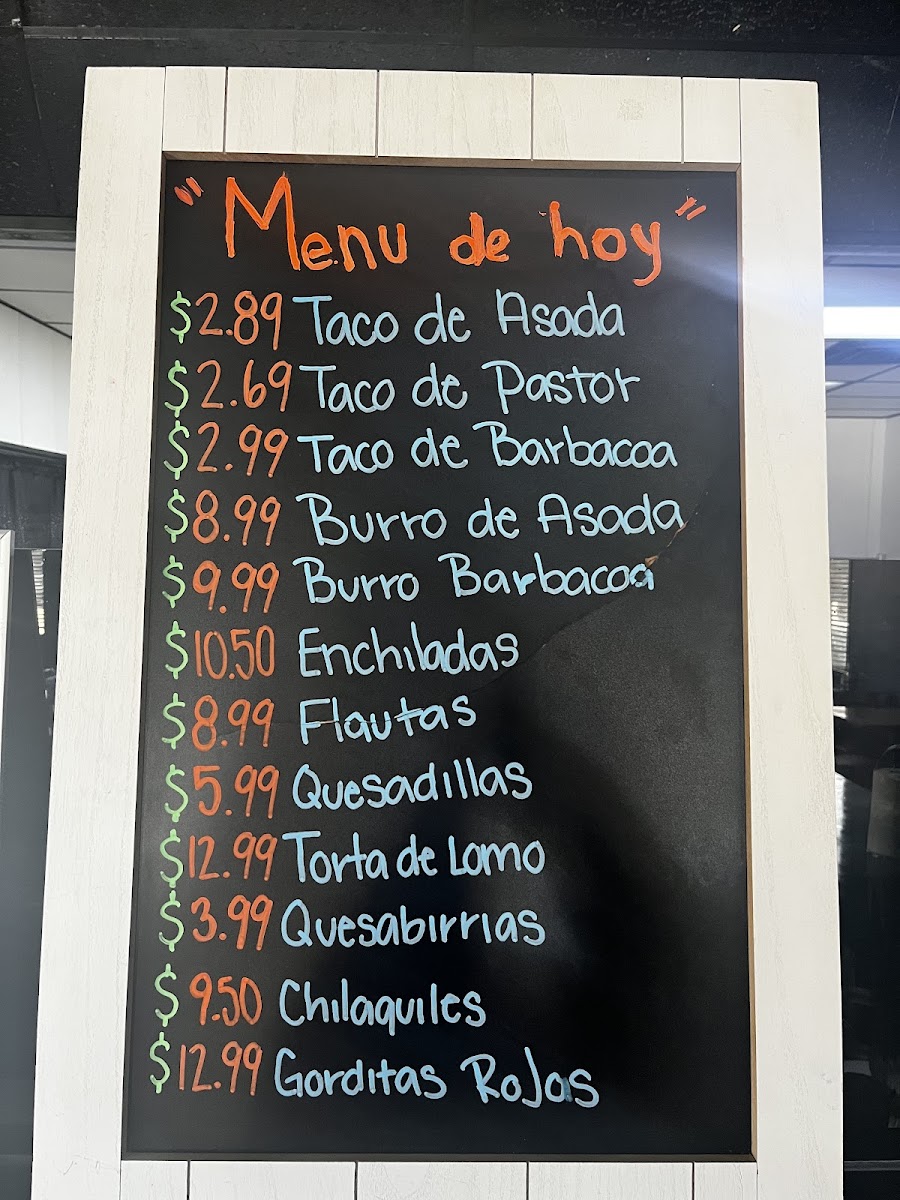 "Menu de hoy"
$2.89 Taco de Asada
$2.69 Taco de Pastor
$2.99 Taco de Barbacoa
$8.99 Burro de Asada
$9.99 Burro Barbacoa
$10.50 Enchiladas
$8.99 Flautas
$5.99 Quesadillas
$12.99 Torta de Lomo
$3.99 Quesabirrias
$9.50 Chilaquiles
$12.99 Gorditas Rojos